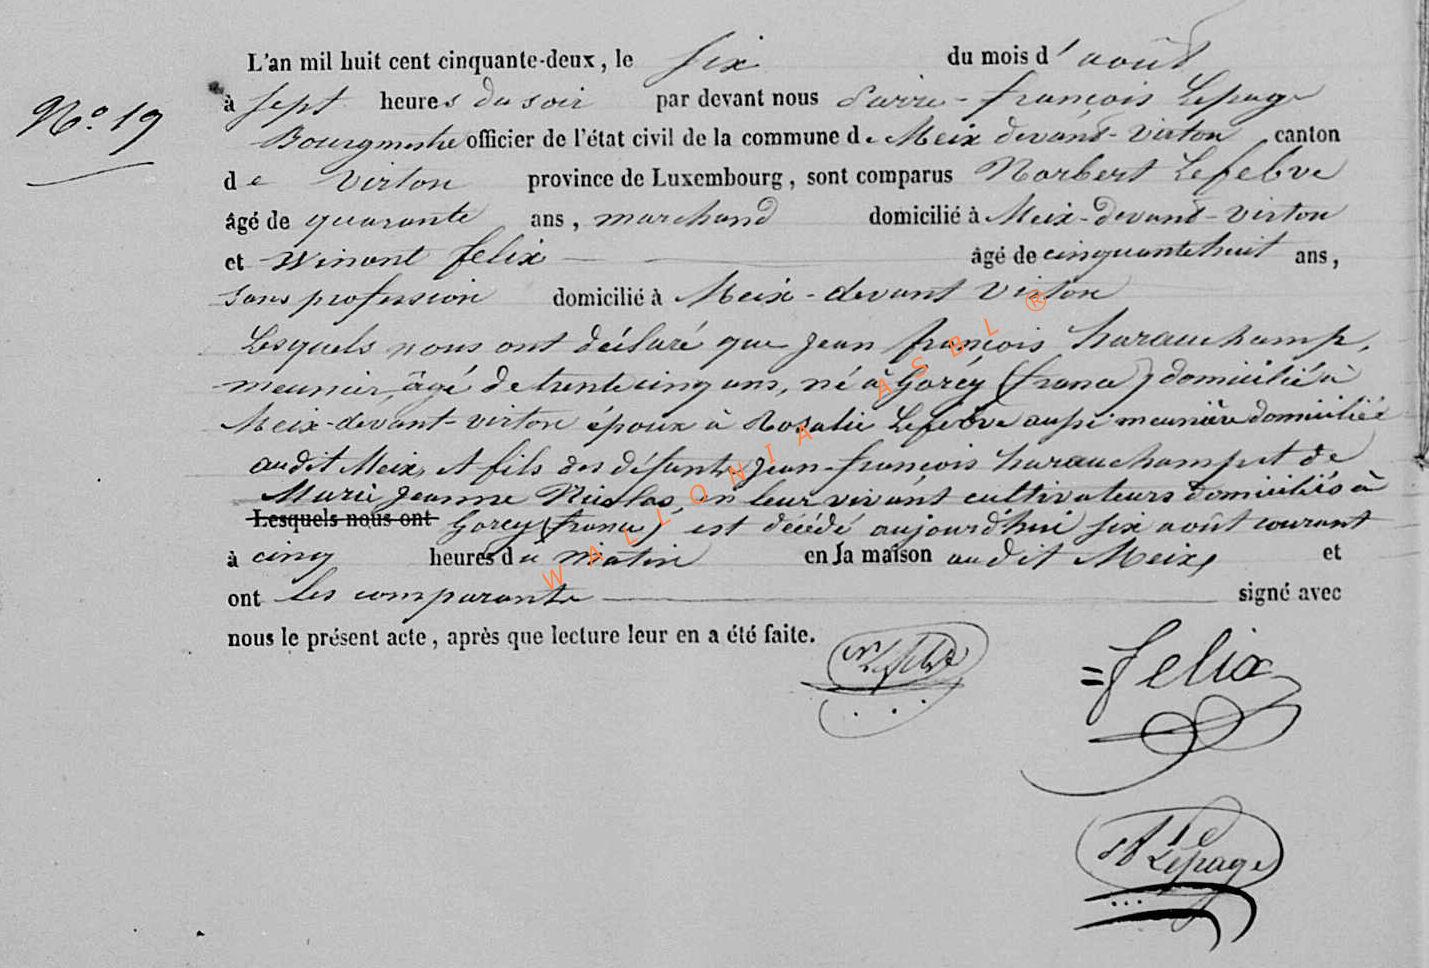 L'an mil huit cent cinquante-deux, le six du mois d'août
à sept heures du soir par devant nous Pierre-françois Lepage
N.o 19
Bourgmestre officier de l'état civil de la commune de Meix devant-virton canton
de virton province de Luxembourg, sont comparus Norbert Lefebvre
âgé de quarante ans, marchand domicilié à Meix-devant-virton
et Winant felix âgé de cinquante huit ans,
sans profession domicilié à Meix-devant virton
Lesquels nous ont déclaré que jean françois harauchamp,
meunier, âgé de trente cinq ans, né à Gorcy (france) domicilié à
Meix-devant-virton époux à Rosalie Lefebvre aussi meunière domiciliée
audit Meix, et fils des défunts jean-françois harauchamp et de
Marie jeanne Nicolas, en leur vivant cultivateurs domiciliés à
Lesquels nous ont Gorcy (france) est décédé aujourd'hui six août courant
à cinq heures du matin en la maison audit Meix, et
ont les comparants signé avec
nous le présent acte, après que lecture leur en a été faite.
N Lefebvre
=felix
Lepage
WALLONIA ASBL ®